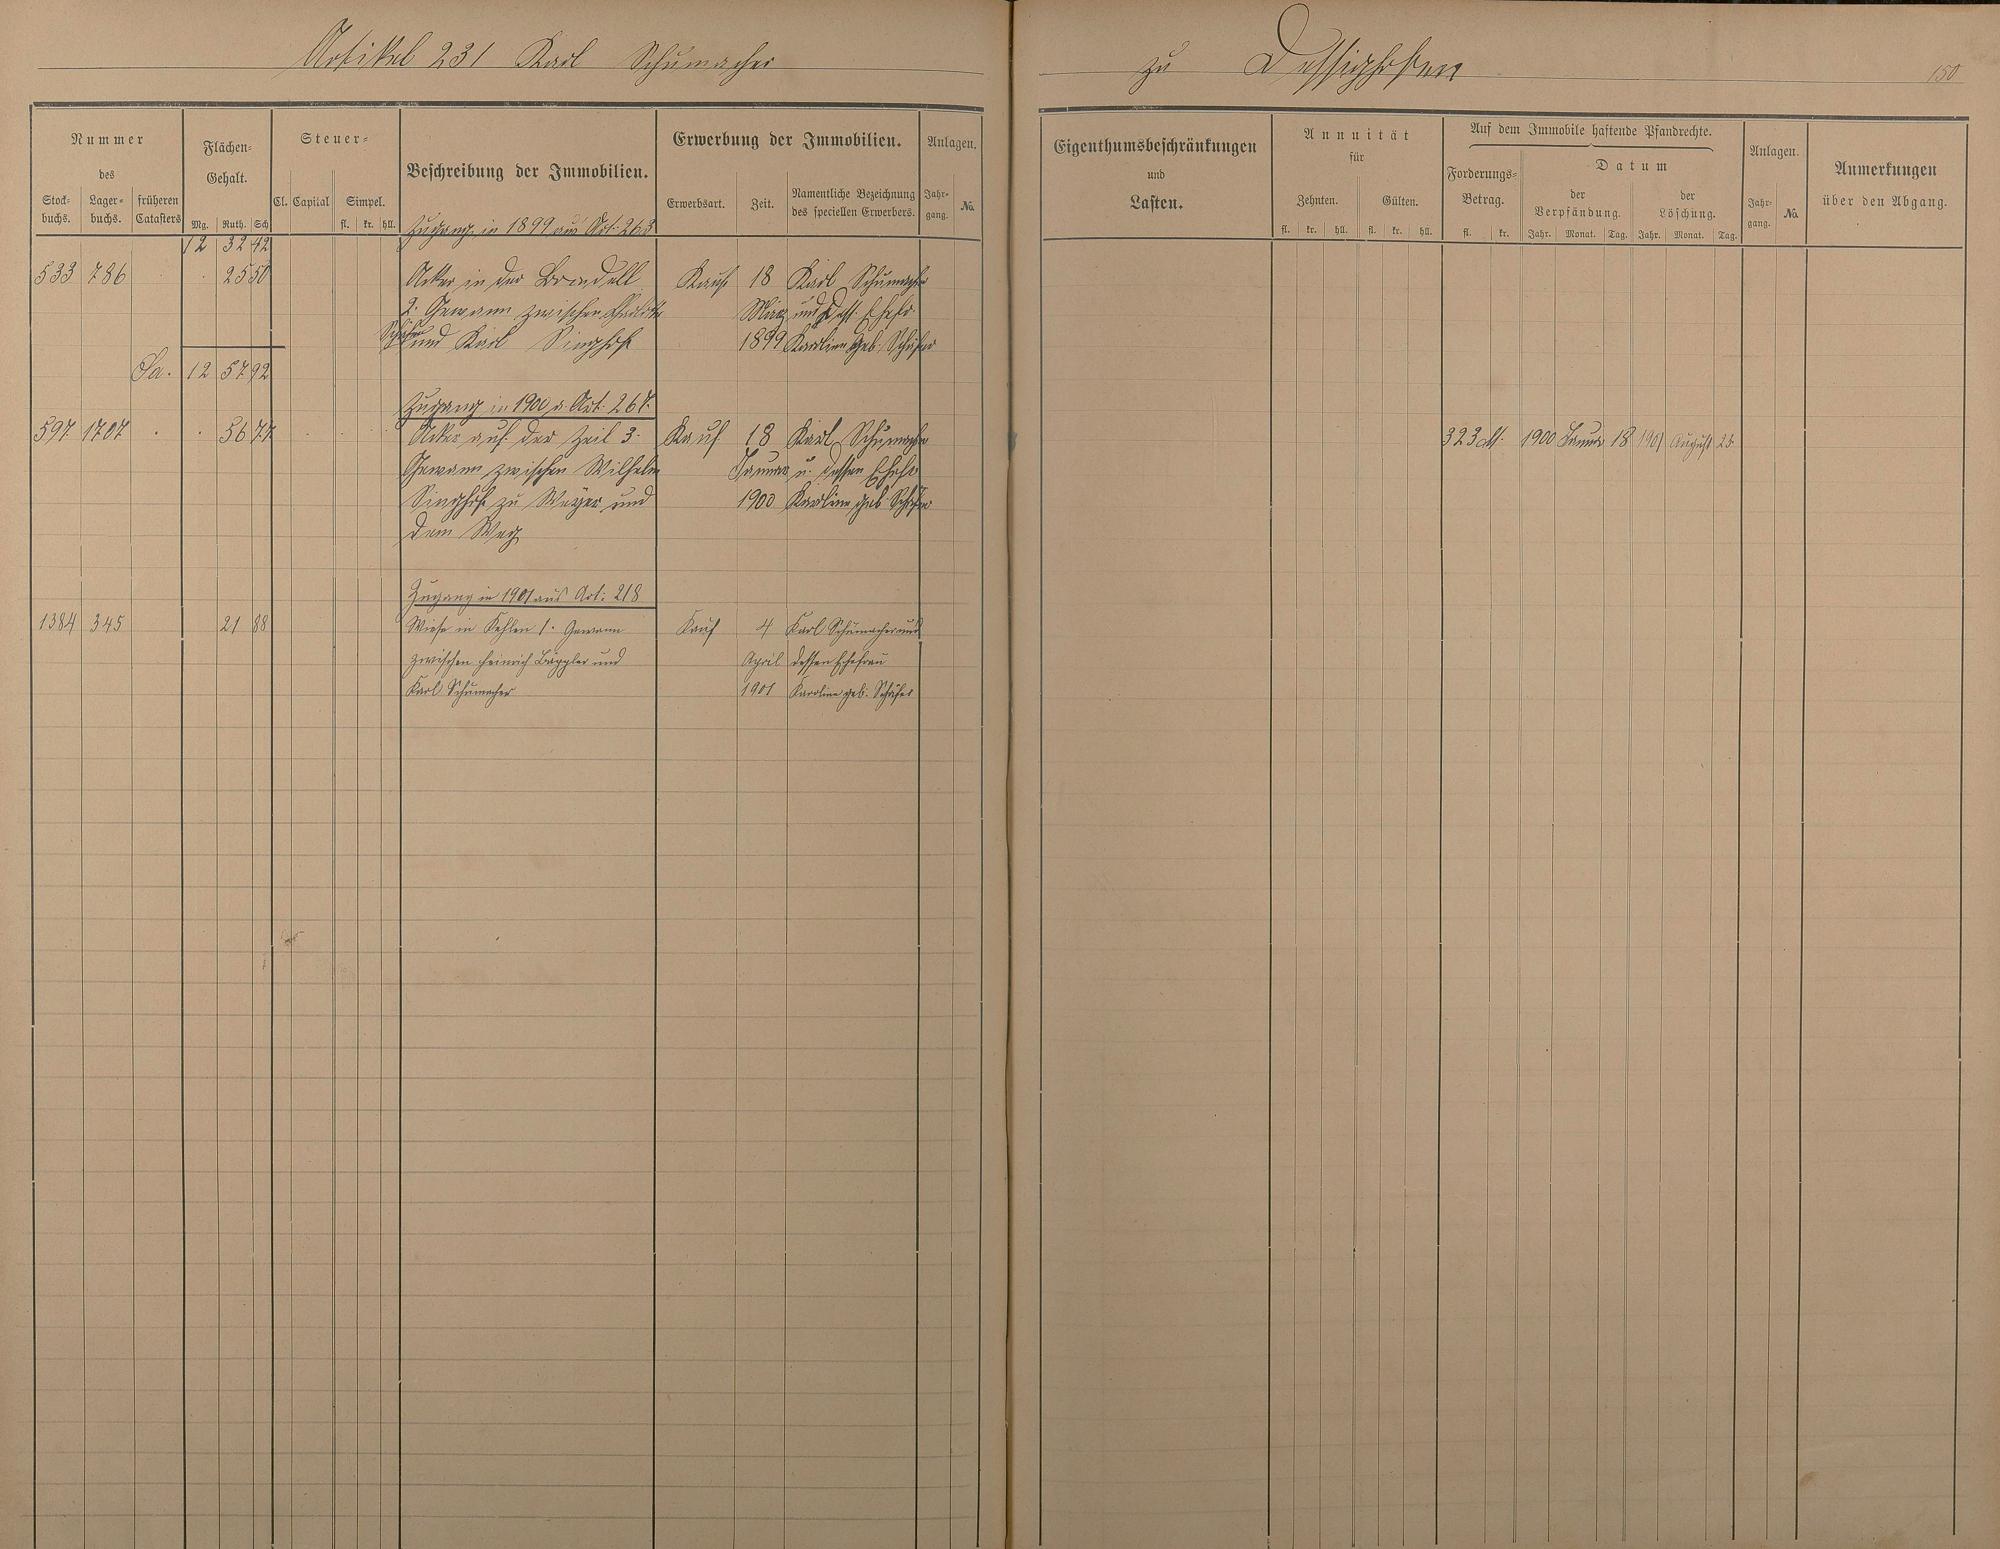 Artikel 231 Karl Schumacher
zu Dessighofen
150
Nummer
des
Stock-
buchs.
Lager-
buchs.
früheren
Catasters
Flächen-
Gehalt.
Mg. Ruth. Sch
Steuer-
Cl. Capital
Simpel.
fl. kr. hll.
Beschreibung der Immobilien.
Erwerbung der Immobilien.
Erwerbsart.
Zeit.
Namentliche Bezeichnung
des speciellen Erwerbers.
Anlagen.
Jahr-
gang.
No.
Eigenthumsbeschränkungen
und
Lasten.
Annuität
für
Zehnten.
fl. kr. hll.
Gülten.
fl. kr. hll.
Auf dem Immobile haftende Pfandrechte.
Forderungs-
Betrag.
fl. kr.
Datum
der
Verpfändung.
Jahr. Monat. Tag.
der
Löschung.
Jahr. Monat. Tag.
Anlagen.
Jahr-
gang.
No.
Anmerkungen
über den Abgang.
Zugang in 1899 aus Art: 263
12 32 42
533 786 25 50 Acker in der Brandell Kauf 18 Karl Schumacher
2. Gewann zwischen März und Dess. Ehefr
Schäfer und Karl Singhof 1899 Karoline geb. Schäfer
Sa. 12 57 92
Zugang in 1900 a. Art. 267.
597. 1707 56 77 Acker auf der Zeil 3. Kauf 18 Karl Schumacher 323 M. 1900 Januar 18 1901 August 23.
Gewann zwischen Wilhelm Januar u. dessen Ehefr
Singhof zu Weyer und 1900 Karoline geb Schäfer
dem Weg
Zugang in 1901 aus Art: 218
1384 345 21 88 Wiese in Kehlen 1. Gewann Kauf 4 Karl Schumacher und
zwischen Heinrich Bäppler und April dessen Ehefrau
Karl Schumacher 1901 Karoline geb: Schäfer